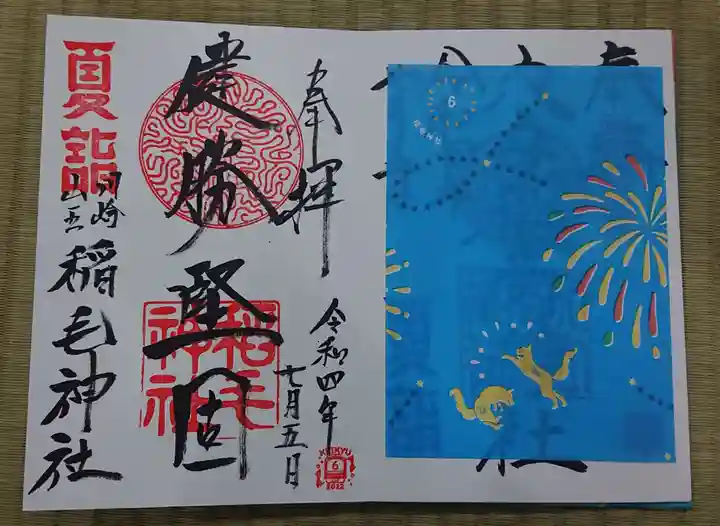 奉拝
健勝堅固
稲毛神社
令和四年
七月五日
夏詣
川崎
山王
稲毛神社
KEIKYU
6
2022
6
社